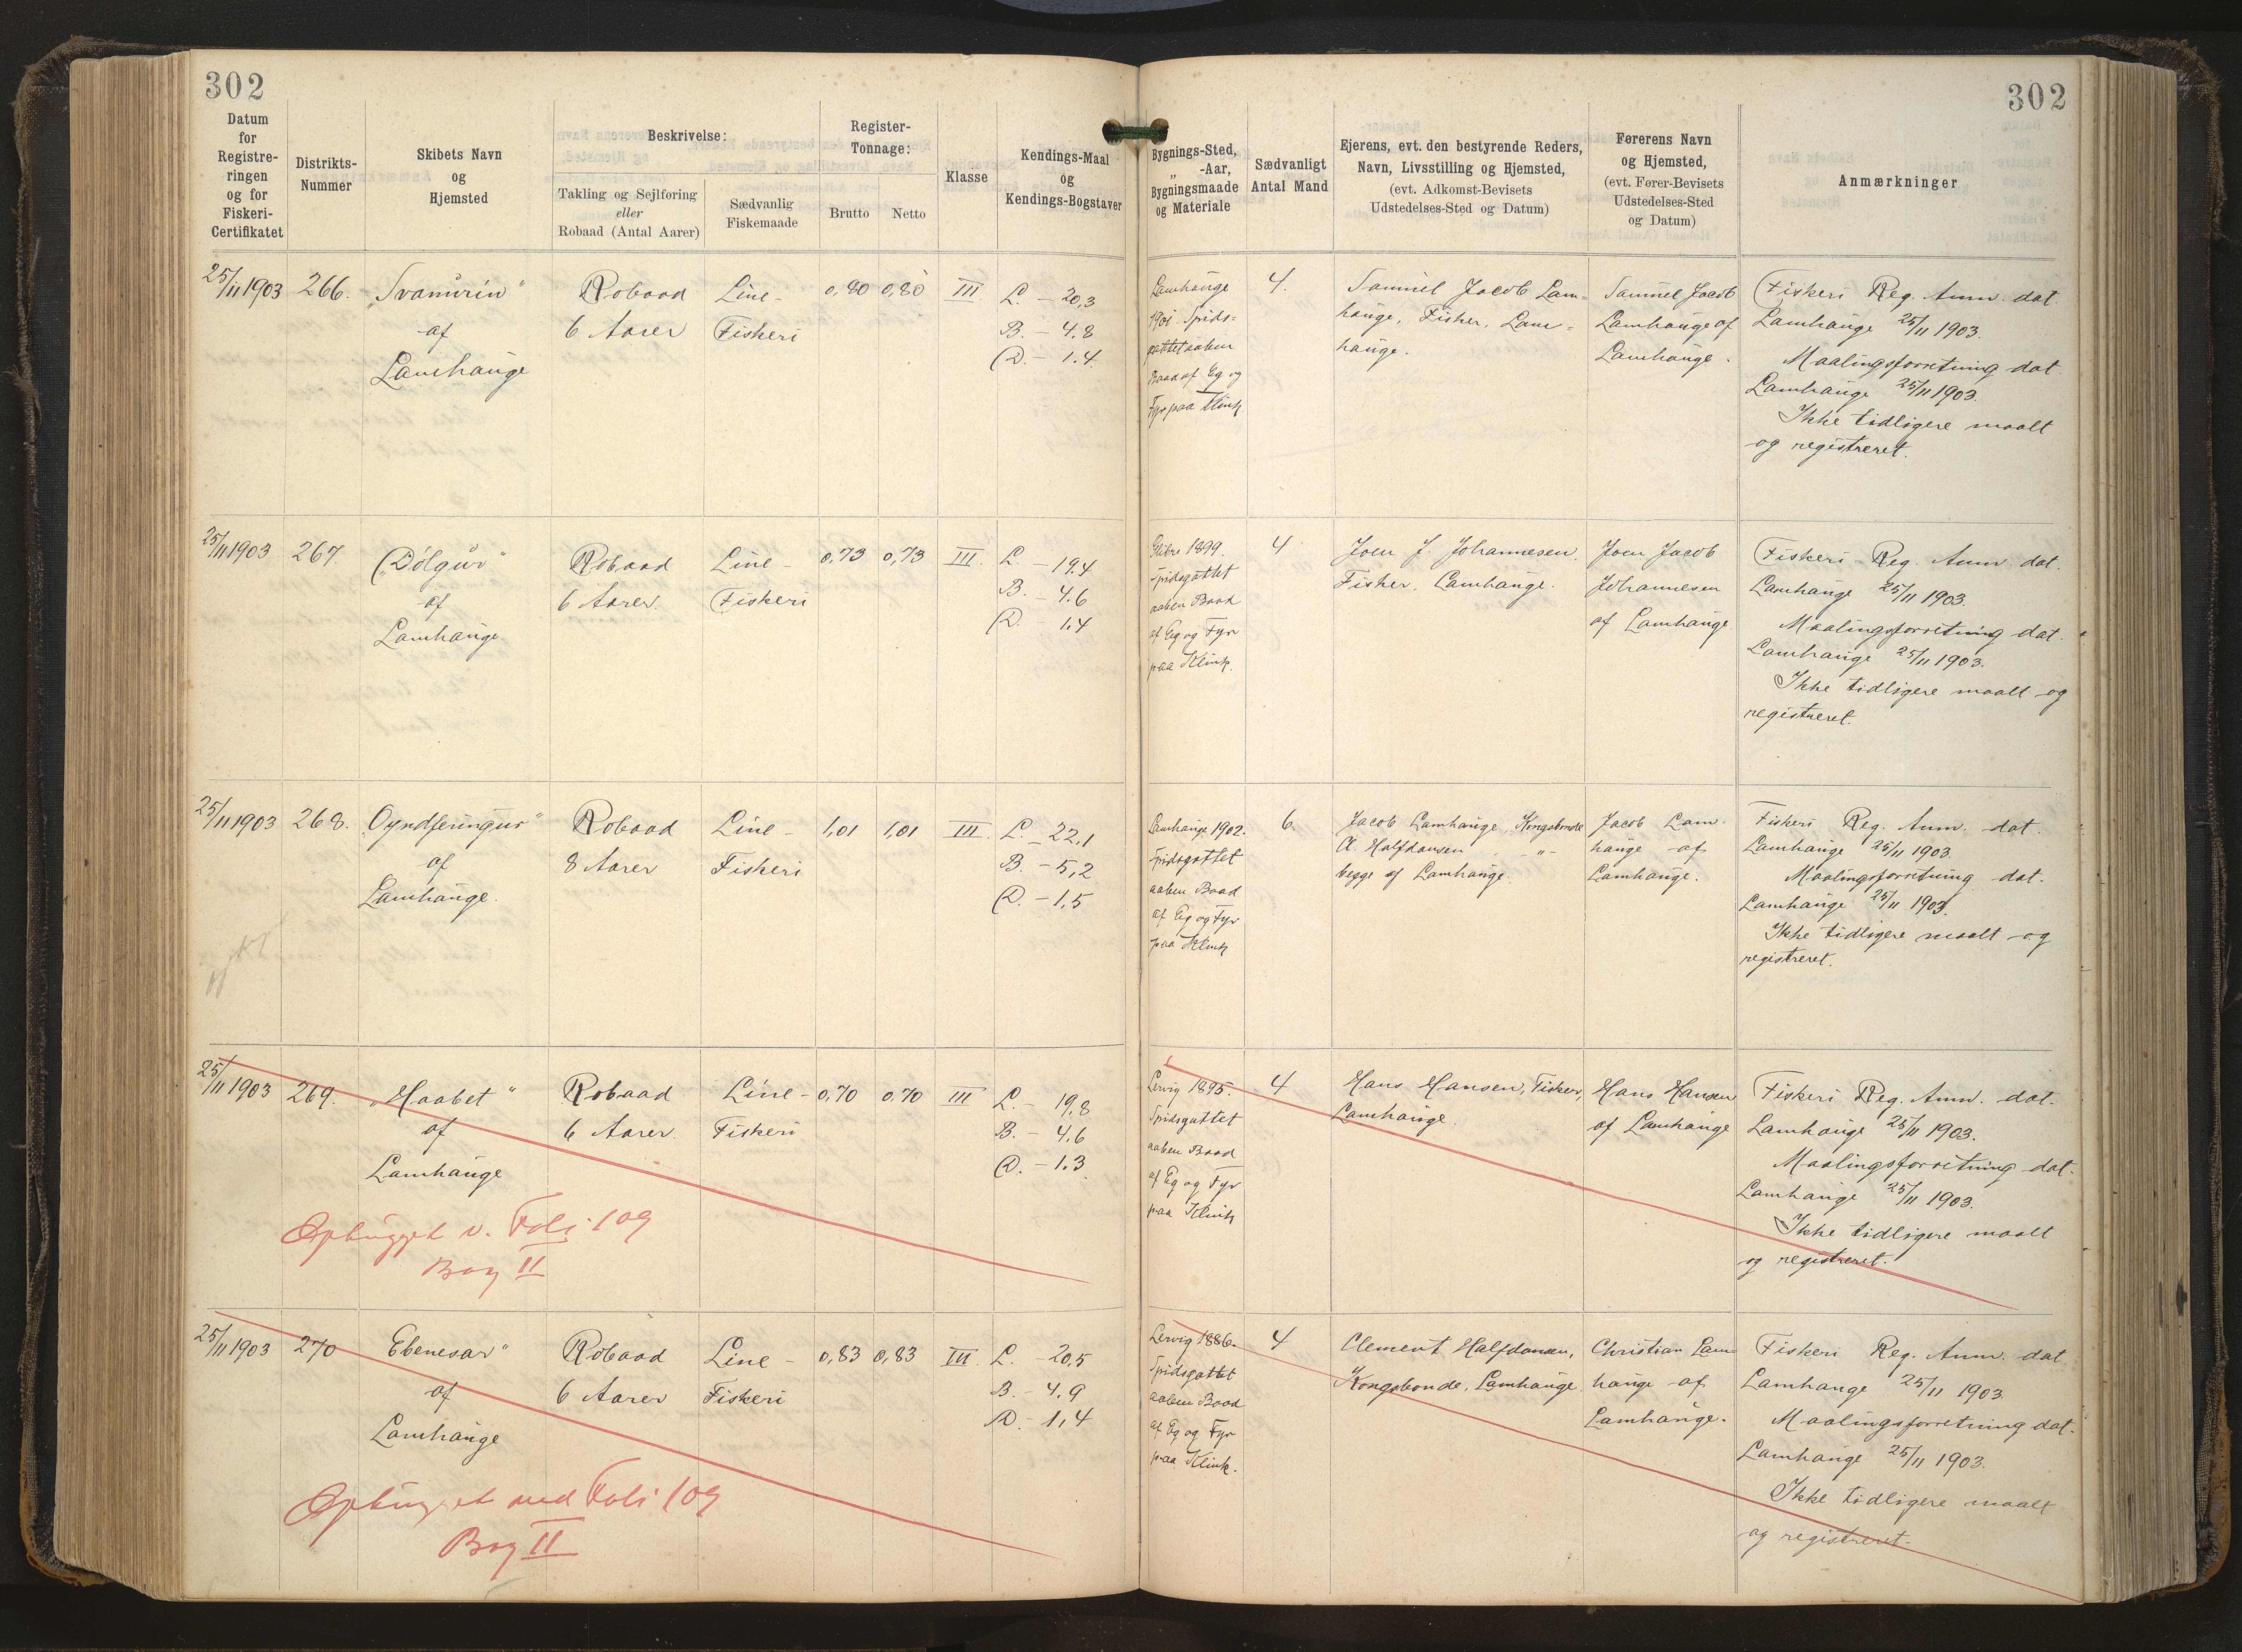 302
302
Datum
for
Registre-
ringen
og for
Fiskeri-
Certifikatet
Distrikts-
Nummer
Skibets Navn
og
Hjemsted
Beskrivelse:
Takling og Sejlføring
eller
Robaad (Antal Aarer)
Sædvanlig
Fiskemaade
Register-
Tonnage:
Brutto
Netto
Klasse
Kendings-Maal
og
Kendings-Bogstaver
Bygnings-Sted,
„ -Aar,
Bygningsmaade
og Materiale
Sædvanligt
Antal Mand
Ejerens, evt. den bestyrende Reders,
Navn, Livsstilling og Hjemsted,
(evt. Adkomst-Bevisets
Udstedelses-Sted og Datum)
Førerens Navn
og Hjemsted,
(evt. Fører-Bevisets
Udstedelses-Sted
og Datum)
Anmærkninger
25/11 1903
266.
„Svanurin"
af
Lamhauge
Robaad
6 Aarer
Line-
Fiskeri
0,80
0,80
III.
L. - 20,3
B. - 4.8
D. - 1.4
Lamhauge
1901. Spids-
gattet aaben
Baad af Eg og
Fyr paa Klink
4.
Samuel Jacob Lam-
hauge, Fisker, Lam-
hauge.
Samuel Jacob
Lamhauge af
Lamhauge.
Fiskeri Reg. Anm. dat.
Lamhauge 25/11 1903.
Maalingsforretning dat.
Lamhauge 25/11 1903.
Ikke tidligere maalt
og registreret.
25/11 1903
267
„Dólgur"
af
Lamhauge
Robaad
6 Aarer.
Line-
Fiskeri
0,73
0,73
III.
L - 19.4
B. - 4.6
D. - 1.4
1899.
Spidsgattet
aaben Baad
af Eg og Fyr
paa Klink.
4
Joen J. Johannesen.
Fisker, Lamhauge.
Joen Jacob
Johannesen
af Lamhauge
Fiskeri Reg. Anm dat.
Lamhauge 25/11 1903.
Maalingsforretning dat.
Lamhauge 25/11 1903.
Ikke tidligere maalt og
registreret.
25/11 1903
268.
„Oyndferingur"
af
Lamhauge.
Robaad
8 Aarer
Line-
Fiskeri
1,01
1,01
III.
L - 22,1
B. - 5,2
D. - 1,5
Lamhauge 1902.
Spidsgattet
aaben Baad
af Eg og Fyr
paa Klink
6.
Jacob Lamhauge, Kongsbonde
Cl. Halfdansen -"-
begge af Lamhauge.
Jacob Lam-
hauge af
Lamhauge.
Fiskeri Reg. Anm. dat.
Lamhauge 25/11 1903.
Maalingsforretning dat.
Lamhauge 25/11 1903.
Ikke tidligere maalt og
registreret.
25/11 1903
269.
„Haabet"
af
Lamhauge
Robaad
6 Aarer.
Line-
Fiskeri
0,70
0,70
III
L. - 19,8
B. - 4,6
D. - 1.3
Lervig 1895.
Spidsgattet
aaben Baad
af Eg og Fyr
paa Klink
4
Hans Hansen, Fisker,
Lamhauge.
Hans Hansen
af Lamhauge
Fiskeri Reg. Anm. dat.
Lamhauge 25/11 1903.
Maalingsforretning dat.
Lamhauge 25/11 1903.
Ikke tidligere maalt
og registreret.
Ophugget v. Foli 109
Bog II
25/11 1903
270
Ebenesar"
af
Lamhauge
Robaad
6 Aarer
Line-
Fiskeri
0,83
0,83
III
L. - 20,5
B. - 4,9
D. - 1,4
Lervig 1886.
Spidsgattet
aaben Baad
af Eg og Fyr
paa Klink.
4
Clement Halfdansen,
Kongsbonde, Lamhauge.
Christian Lam-
hauge af
Lamhauge.
Fiskeri Reg. Anm. dat.
Lamhauge 25/11 1903
Maalingsforretning dat.
Lamhauge 25/11 1903.
Ikke tidligere maalt
og registreret.
Ophugget ved Foli 109
Bog II